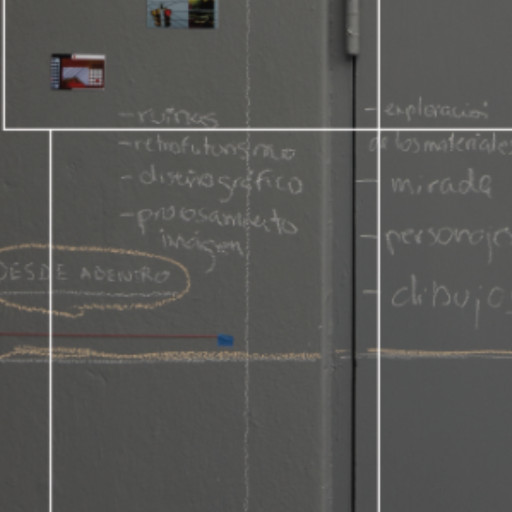 - ruinas
- retrofuturismo
- diseño gráfico
- procesamiento
imagen
DESDE ADENTRO
- exploración
de los materiales
- mirada
- personajes
- dibujo